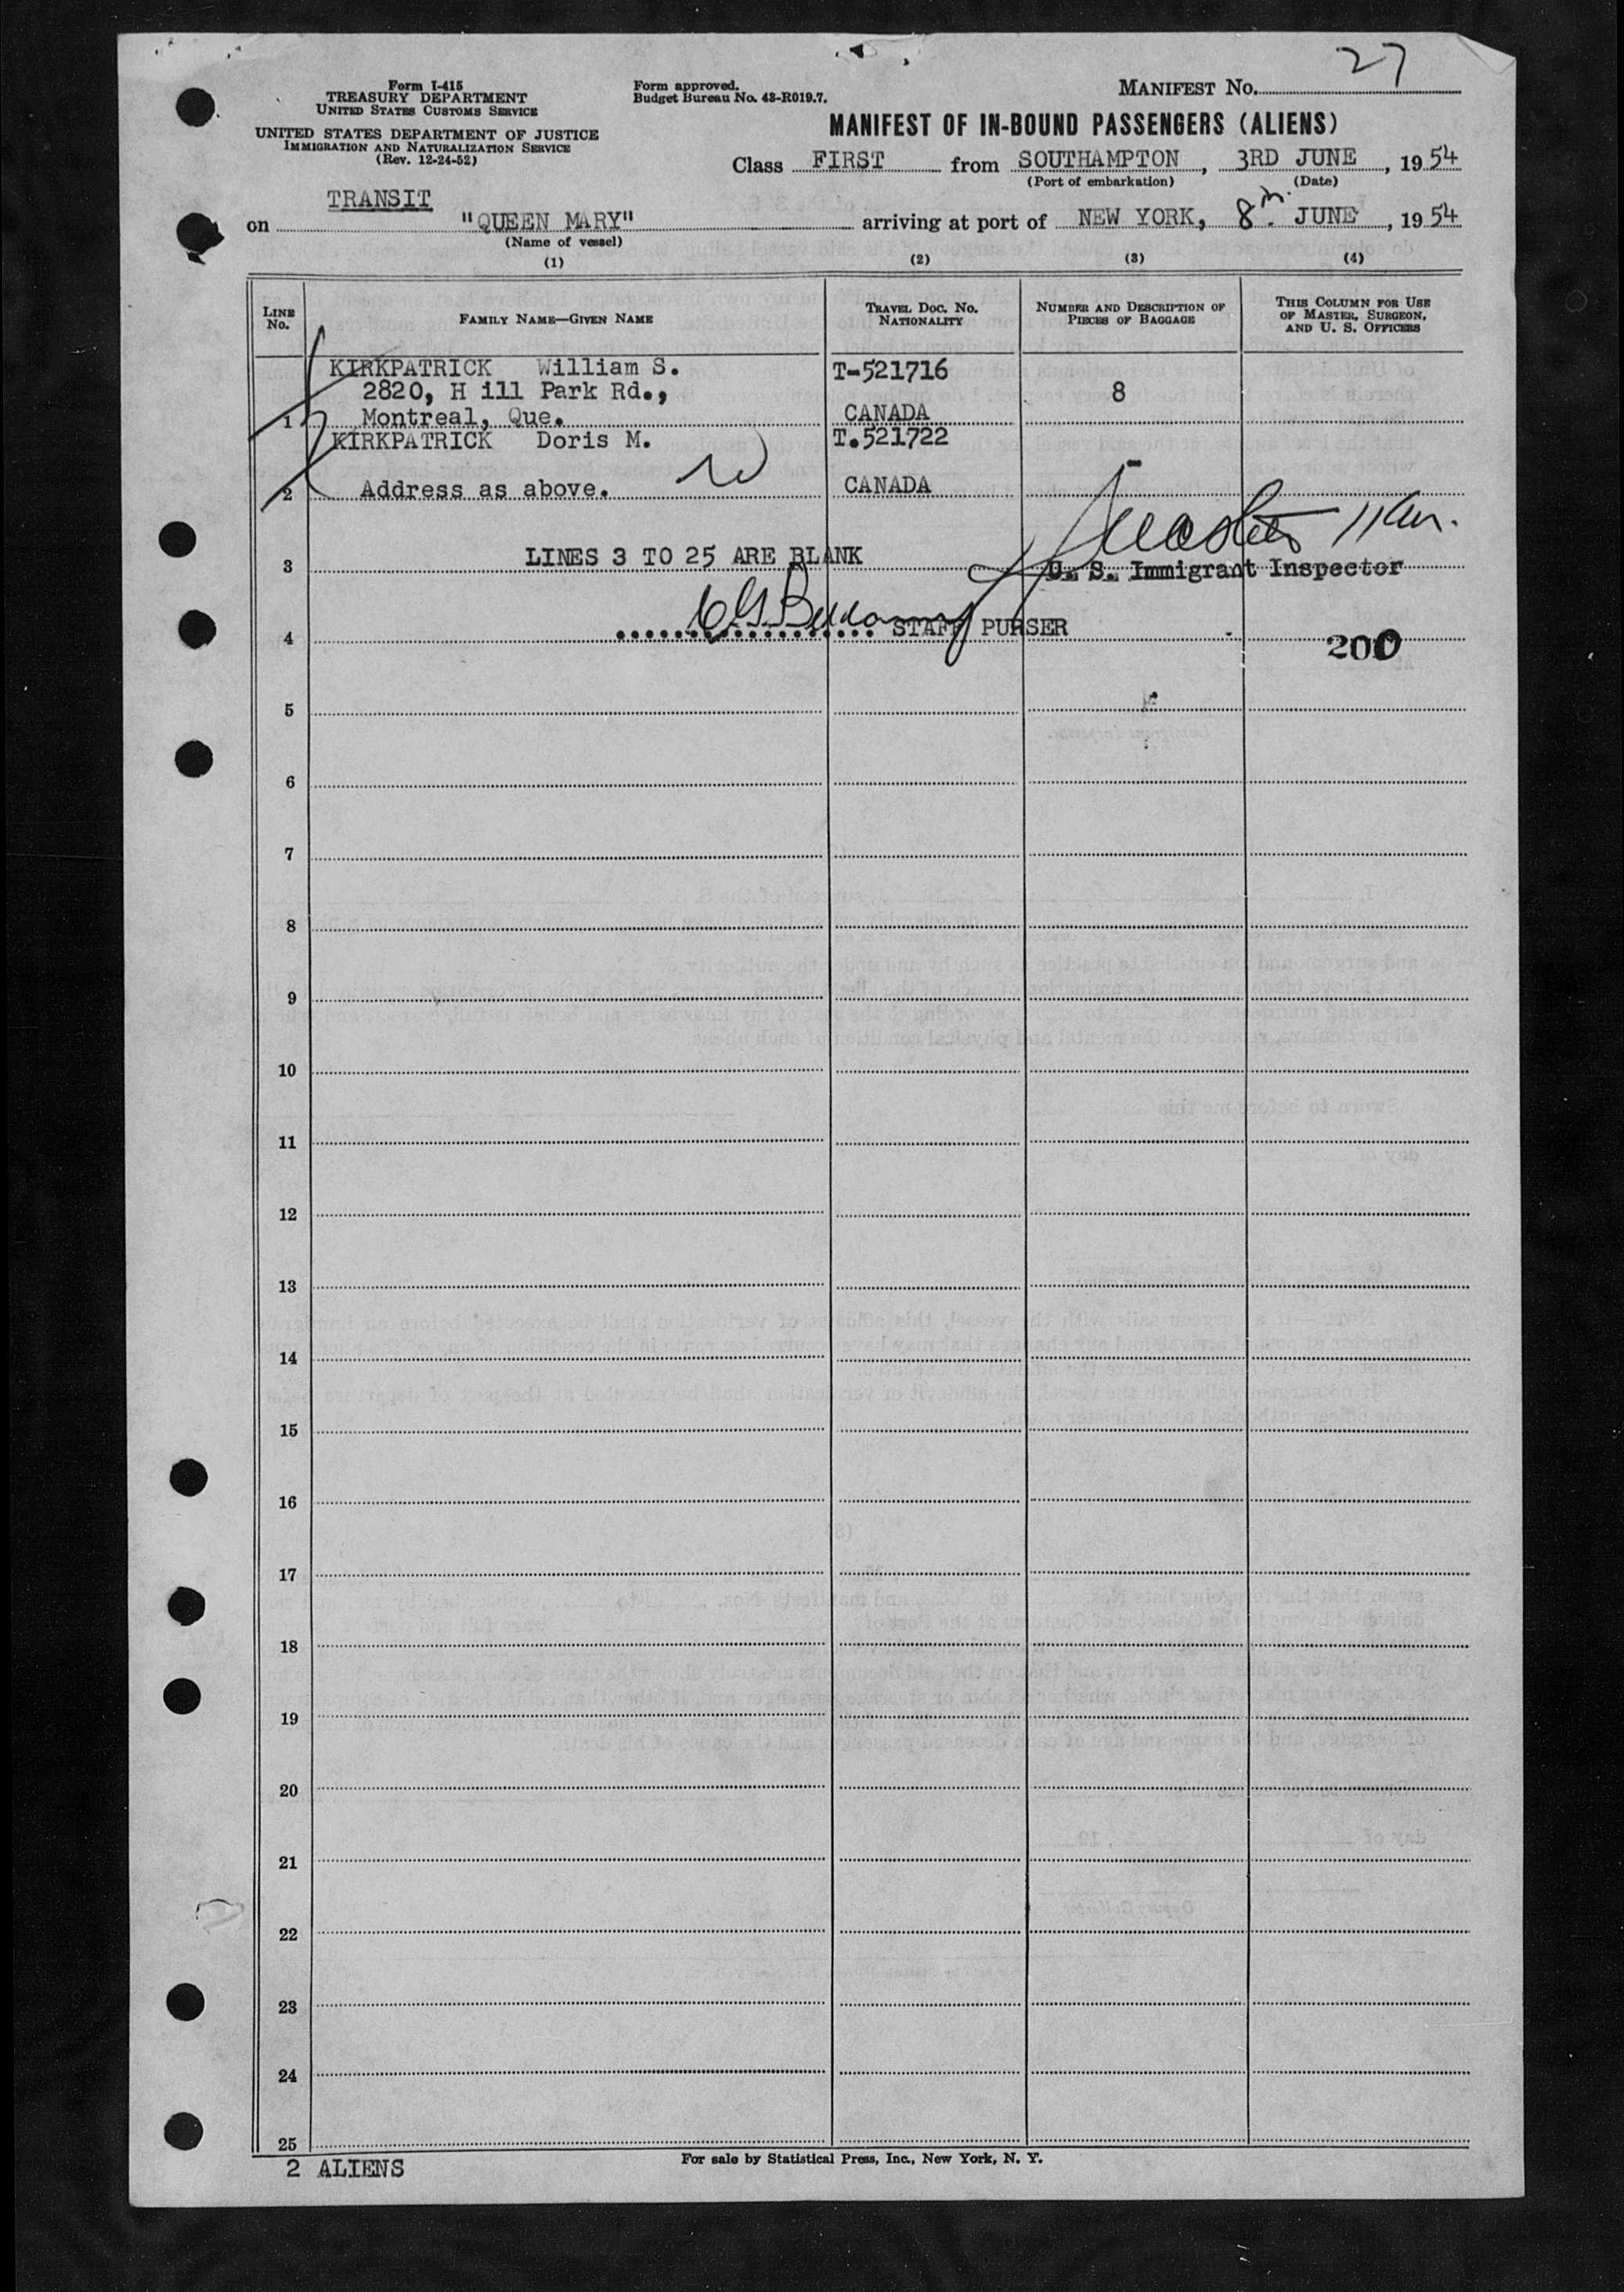 27
Form I-415
TREASURY DEPARTMENT
UNITED STATES CUSTOMS SERVICE
UNITED STATES DEPARTMENT OF JUSTICE
IMMIGRATION AND NATURALIZATION SERVICE
(Rev. 12-24-52)
Form approved.
Budget Bureau No. 43-R019.7.
MANIFEST No.
MANIFEST OF IN-BOUND PASSENGERS (ALIENS)
Class FIRST from SOUTHAMPTON, 3RD JUNE, 1954
(Port of embarkation) (Date)
TRANSIT
on "QUEEN MARY" arriving at port of NEW YORK, 8th JUNE, 1954
(Name of vessel)
(1) (2) (3) (4)
LINE No. FAMILY NAME—GIVEN NAME TRAVEL DOC. NO. NATIONALITY NUMBER AND DESCRIPTION OF PIECES OF BAGGAGE THIS COLUMN FOR USE OF MASTER, SURGEON, AND U. S. OFFICERS
KIRKPATRICK William S. T-521716
2820, H ill Park Rd., 8
1 Montreal, Que. CANADA
KIRKPATRICK Doris M. T.521722
2 Address as above. CANADA -
3 LINES 3 TO 25 ARE BLANK U. S. Immigrant Inspector
4 STAFF PURSER 200
5
6
7
8
9
10
11
12
13
14
15
16
17
18
19
20
21
22
23
24
25
2 ALIENS
For sale by Statistical Press, Inc., New York, N. Y.